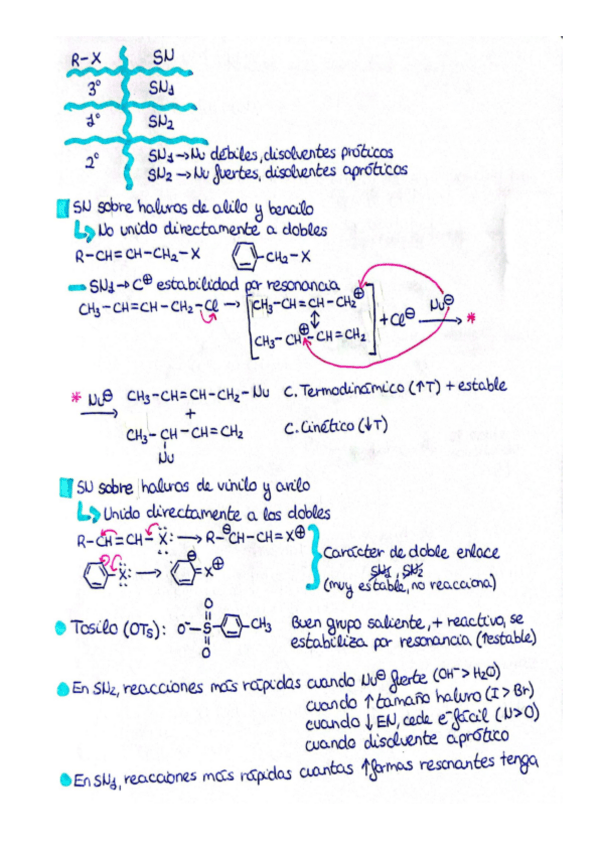 R-X SN
3º SN1
1º SN2
2º SN1→Nu débiles, disolventes próticos
SN2→Nu fuertes, disolventes apróticos
SN sobre haluros de alilo y bencilo
↳ No unido directamente a dobles
R-CH=CH-CH2-X CH2-X
→ SN1→C⊕ estabilidad por resonancia
CH3-CH=CH-CH2-Cl → [CH3-CH=CH-CH2⊕ ↕ CH3-CH⊕-CH=CH2] + Cl⊖ Nu⊖ → *
* Nu⊖ → CH3-CH=CH-CH2-Nu C. Termodinámico (↑T) + estable
+
CH3-CH-CH=CH2 C. Cinético (↓T)
Nu
SN sobre haluros de vinilo y arilo
↳ Unido directamente a los dobles
R-CH=CH-X: → R-⊖CH-CH=X⊕
X: → ⊖ =X⊕
Carácter de doble enlace
SN1, SN2
(muy estable, no reacciona)
Tosilo (OTs): O⁻-S-CH3 Buen grupo saliente, + reactivo, se
O
O
estabiliza por resonancia (↑estable)
En SN2, reacciones más rápidas cuando Nu⊖ fuerte (OH⁻>H2O)
cuando ↑ tamaño haluro (I>Br)
cuando ↓EN, cede e⁻ fácil (N>O)
cuando disolvente aprótico
En SN1, reacciones más rápidas cuantas ↑formas resonantes tenga